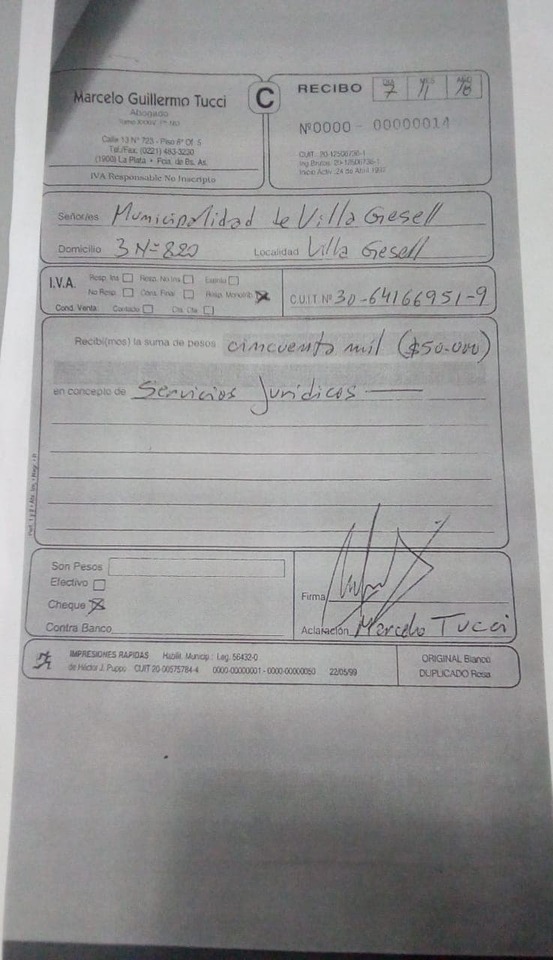 Marcelo Guillermo Tucci
Abogado
C
RECIBO
DIA MES AÑO
7 11
Nº0000 - 00000014
Calle 13 Nº 723 - Piso 8º Of. 5
Tel/Fax: (0221) 483-3230
(1900) La Plata • Pcia. de Bs. As.
IVA Responsable No Inscripto
CUIT
Señor/es Municipalidad de Villa Gesell
Domicilio 3 Nº 820 Localidad Villa Gesell
I.V.A.
Resp. Ins Resp. No Ins Exento
No Resp. Cons. Final Resp. Monotrib
C.U.I.T Nº 30-64166951-9
Cond. Venta: Contado Cta. Cte.
Recibí(mos) la suma de pesos cincuenta mil ($50.000)
en concepto de Servicios Jurídicos
Son Pesos
Efectivo
Cheque
Contra Banco
Firma
Aclaración Marcelo Tucci
IMPRESIONES RAPIDAS Habilit. Municip.: Leg. 56432-0
de Héctor J. Puppo CUIT 20-00575784-4 0000-00000001 - 0000-00000050 22/05/99
ORIGINAL Blanco
DUPLICADO Rosa